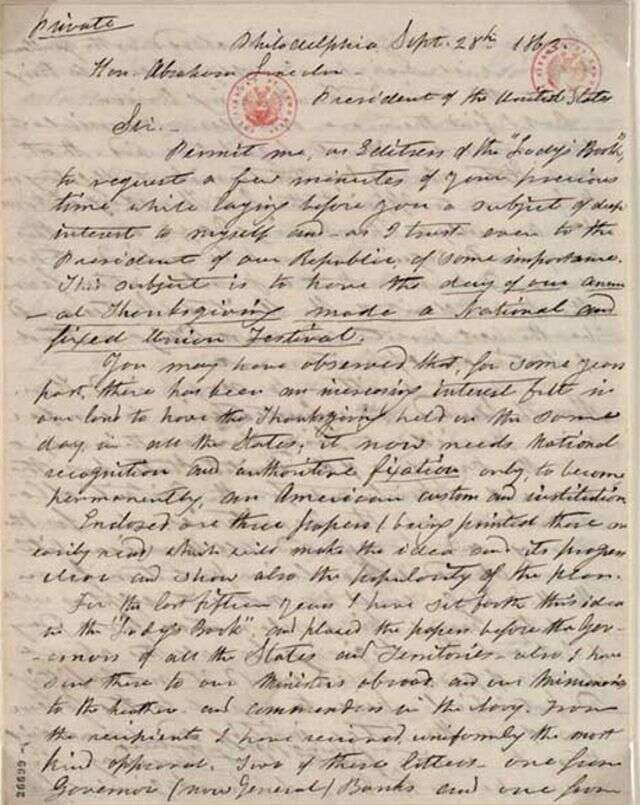 Private
Philadelphia Sept. 28th 1863.
Hon. Abraham Lincoln
President of the United States
Sir.-
Permit me, as Editress of the "Lady's Book",
to request a few minutes of your precious
time, while laying before you a subject of deep
interest to myself and - as I trust - even to the
President of our Republic, of some importance.
This subject is to have the day of our annu
-al Thanksgiving made a National and
fixed Union Festival.
You may have observed that, for some years
past, there has been an increasing interest felt in
our land to have the Thanksgiving held on the same
day, in all the States; it now needs National
recognition and authoritive fixation, only, to become
permanently, an American custom and institution.
Enclosed are three papers (being printed these are
easily read) which will make the idea and its progress
clear and show also the popularity of the plan.
For the last fifteen years I have set forth this idea
in the "Lady's Book", and placed the papers before the Gov-
-ernors of all the States and Territories - also I have
sent these to our Ministers abroad, and our Missionaries
to the heathen - and commanders in the Navy. From
the recipients I have received, uniformly the most
kind approval. Two of these letters, one from
Governor (now General) Banks and one from
26699